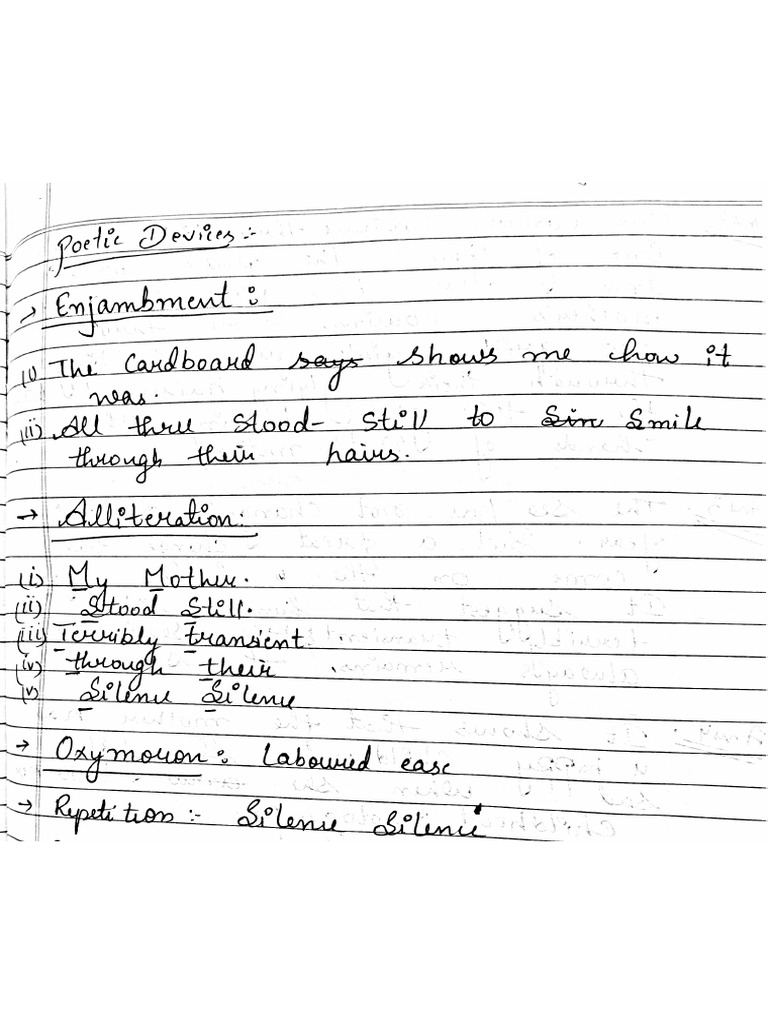 Poetic Devices :-
→ Enjambment :
(i) The Cardboard says shows me how it
was.
(ii) All three stood- still to Sin Smile
through their hairs.
→ Alliteration:
(i) My Mother.
(ii) Stood Still.
(iii) Terribly transient
(iv) through their
(v) Silence Silence
→ Oxymoron : laboured ease
→ Repetition :- Silence Silence